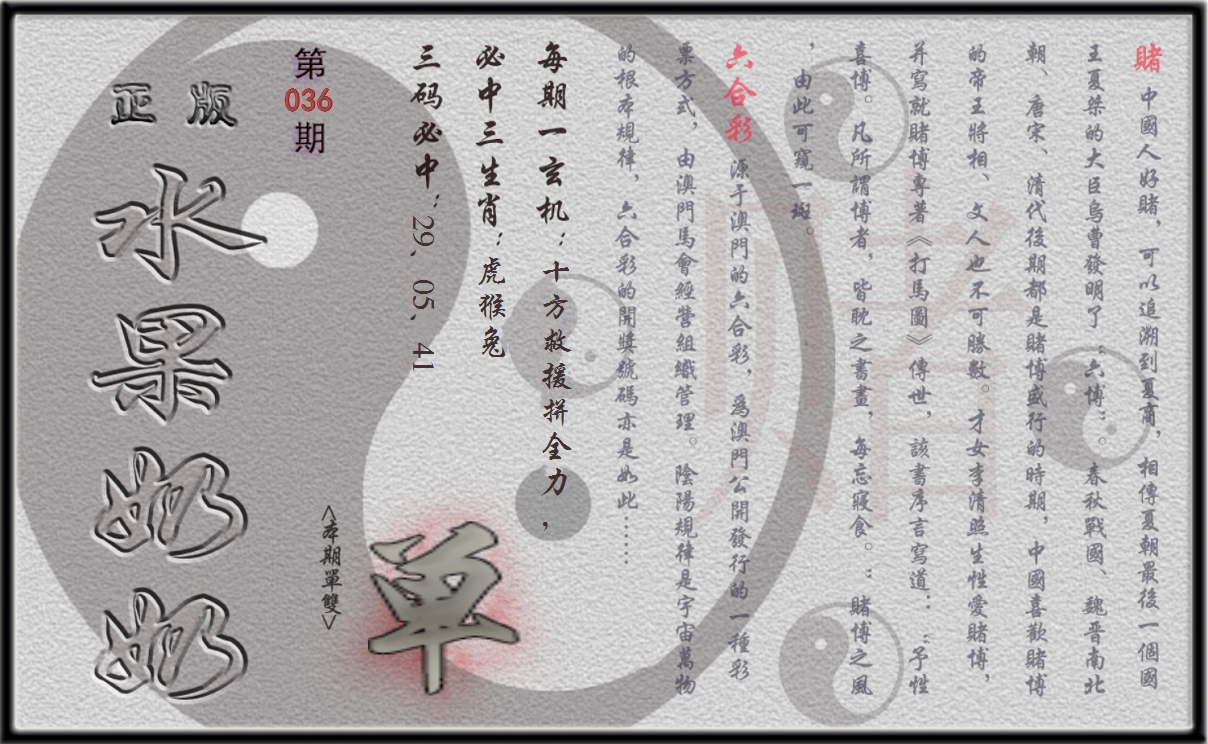 賭 中國人好賭，可以追溯到夏商，相傳夏朝最後一個國
王夏桀的大臣烏曹發明了“六博”。春秋戰國、魏晉南北
朝、唐宋、清代後期都是賭博盛行的時期，中國喜歡賭博
的帝王將相、文人也不可勝數。才女李清照生性愛賭博，
并寫就賭博專著《打馬圖》傳世，該書序言寫道：“予性
喜博。凡所謂博者，皆耽之書畫，每忘寢食。：賭博之風
，由此可窺一斑。
六合彩 源于澳門的六合彩，爲澳門公開發行的一種彩
票方式，由澳門馬會經營組織管理。陰陽規律是宇宙萬物
的根本規律，六合彩的開獎號碼亦是如此……
每期一玄机：十方救援拼全力，
必中三生肖：虎猴兔
三码必中：29、05、41
單
<本期單雙>
第
036
期
正版
水果奶奶
赌